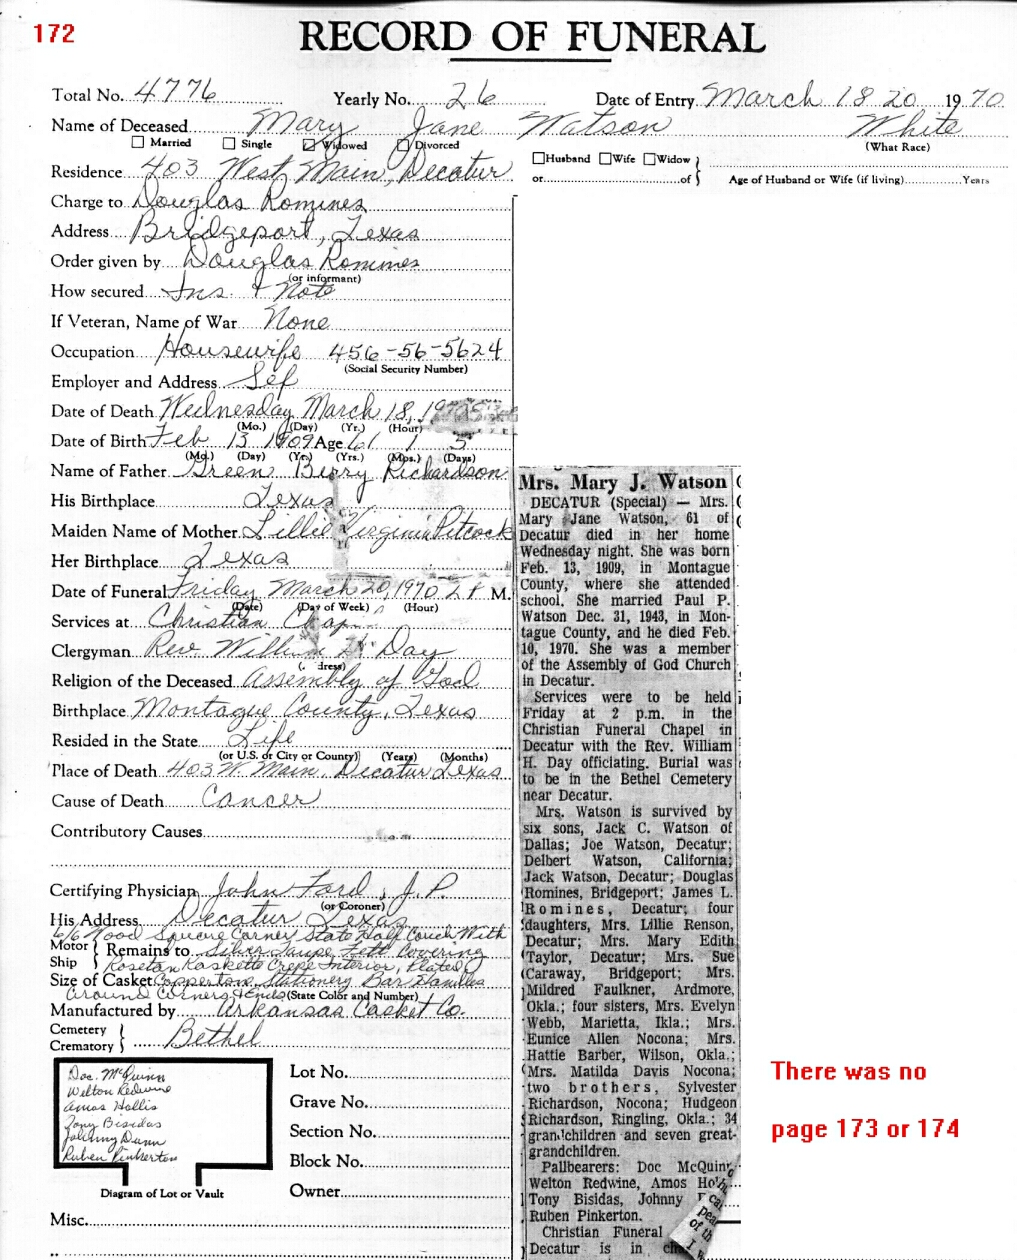 172
RECORD OF FUNERAL
Total No. 4776 Yearly No. 26 Date of Entry March 18 20 1970
Name of Deceased Mary Jane Watson White
Married Single Widowed Divorced (What Race)
Residence 403 West Main, Decatur
Husband Wife Widow
or of Age of Husband or Wife (if living) Years
Charge to Douglas Romines
Address Bridgeport, Texas
Order given by Douglas Romines
(or informant)
How secured Ins. & Note
If Veteran, Name of War None
Occupation Housewife 456-56-5624
(Social Security Number)
Employer and Address Self
Date of Death Wednesday March 18, 1970
(Mo.) (Day) (Yr.) (Hour)
Date of Birth Feb 13 1909 Age 61 1 5
(Mo.) (Day) (Yr.) (Yrs.) (Mos.) (Days)
Name of Father Green Berry Richardson
His Birthplace Texas
Maiden Name of Mother Lillie Virginia Pitcock
Her Birthplace Texas
Date of Funeral Friday March 20, 1970 2 P M.
(Date) (Day of Week) (Hour)
Services at Christian Chap.
Clergyman Rev William H. Day
Religion of the Deceased Assembly of God
Birthplace Montague County, Texas
Resided in the State Life
(or U.S. or City or County) (Years) (Months)
Place of Death 403 W. Main, Decatur Texas
Cause of Death Cancer
Contributory Causes
Certifying Physician John Ford, J.P.
(or Coroner)
His Address Decatur Texas
6/6 Wood Square Corner State Half Couch With
Motor Ship Remains to Silver Taupe Felt Covering
Rosetan Kaskette Crepe Interior, Plated
Size of Casket Coppertone Stationery Bar Handles
around Corners & Ends (State Color and Number)
Manufactured by Arkansas Casket Co.
Cemetery
Crematory Bethel
Doc. McQuinn
Welton Redwine
Amos Hollis
Tony Bisidas
Johnny Dunn
Ruben Pinkerton
Diagram of Lot or Vault
Lot No.
Grave No.
Section No.
Block No.
Owner
Misc.
Mrs. Mary J. Watson
DECATUR (Special) — Mrs.
Mary Jane Watson, 61 of
Decatur died in her home
Wednesday night. She was born
Feb. 13, 1909, in Montague
County, where she attended
school. She married Paul P.
Watson Dec. 31, 1943, in Mon-
tague County, and he died Feb.
10, 1970. She was a member
of the Assembly of God Church
in Decatur.
Services were to be held
Friday at 2 p.m. in the
Christian Funeral Chapel in
Decatur with the Rev. William
H. Day officiating. Burial was
to be in the Bethel Cemetery
near Decatur.
Mrs. Watson is survived by
six sons, Jack C. Watson of
Dallas; Joe Watson, Decatur;
Delbert Watson, California;
Jack Watson, Decatur; Douglas
Romines, Bridgeport; James L.
Romines, Decatur; four
daughters, Mrs. Lillie Renson,
Decatur; Mrs. Mary Edith
Taylor, Decatur; Mrs. Sue
Caraway, Bridgeport; Mrs.
Mildred Faulkner, Ardmore,
Okla.; four sisters, Mrs. Evelyn
Webb, Marietta, Ikla.; Mrs.
Eunice Allen Nocona; Mrs.
Hattie Barber, Wilson, Okla.;
Mrs. Matilda Davis Nocona;
two brothers, Sylvester
Richardson, Nocona; Hudgeon
Richardson, Ringling, Okla.; 34
grandchildren and seven great-
grandchildren.
Pallbearers: Doc McQuinn,
Welton Redwine, Amos
Tony Bisidas, Johnny
Ruben Pinkerton.
Christian Funeral
Decatur is in
There was no
page 173 or 174